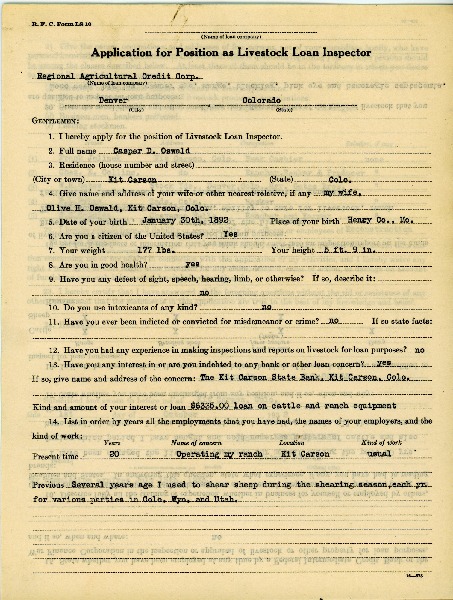 R. F. C. Form LS 10
(Name of loan company)
Application for Position as Livestock Loan Inspector
Regional Agricultural Credit Corp.
(Name of loan company)
Denver Colorado
(City) (State)
GENTLEMEN:
1. I hereby apply for the position of Livestock Loan Inspector.
2. Full name Casper D. Oswald
3. Residence (house number and street)
(City or town) Kit Carson (State) Colo.
4. Give name and address of your wife or other nearest relative, if any my wife.
Olive H. Oswald, Kit Carson, Colo.
5. Date of your birth January 30th, 1892 Place of your birth Henry Co., Mo.
6. Are you a citizen of the United States? Yes
7. Your weight 177 lbs. Your height 5 ft. 9 in.
8. Are you in good health? yes
9. Have you any defect of sight, speech, hearing, limb, or otherwise? If so, describe it:
no
10. Do you use intoxicants of any kind? no
11. Have you ever been indicted or convicted for misdemeanor or crime? no If so state facts:
12. Have you had any experience in making inspections and reports on livestock for loan purposes? no
13. Have you any interest in or are you indebted to any bank or other loan concern? yes
If so, give name and address of the concern: The Kit Carson State Bank, Kit Carson, Colo.
Kind and amount of your interest or loan $6335.00 loan on cattle and ranch equipment
14. List in order by years all the employments that you have had, the names of your employers, and the
kind of work:
Years Name of concern Location Kind of work
Present time 20 Operating my ranch Kit Carson usual
Previous Several years ago I used to shear sheep during the shearing season, each yr.
for various parties in Colo. Wyo. and Utah.